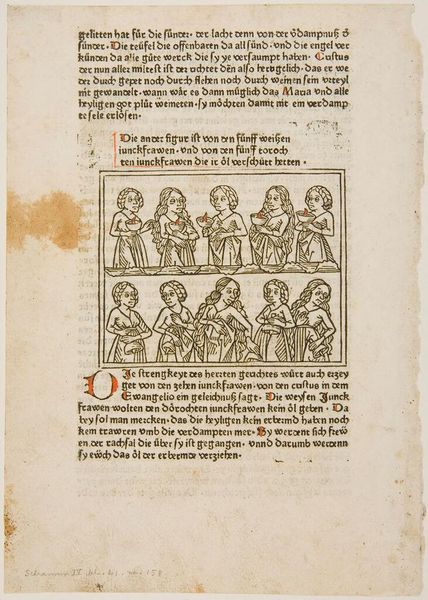 gelitten hat für die sünder · der lacht denn von der v̄dampnuß d̄
sünder · Die teüfel die offenbaren da all sünd · vnd die engel ver
künden da alle gůte werck die sy ye versaumpt haben · Cristus
der nun aller miltest ist der richtet dēn also hertzglich · das er we
der durch gepet noch durch flehen noch durch weinen sein vrteyl
nit gewandelt · wann wär es dann müglich das Maria vnd alle
heyligen got plůt weineten · sy möchten damit nit ein verdamp
te sele erlösen ·
Die ander figur ist von den fünff weißen
iunckfrawen · vnd von den fünf toroch
ten iunckfrawen die ir öl verschütt hetten ·
DJe strengkeyt des herten gerichtes würt auch erzey
get von den zehen iunckfrawen · von den cristus in dem
Ewangelio ein geleichnuß sagt · Die weysen Junck
frawen wolten den dörochten iunckfrawen kein öl geben · Da
bey sol man mercken · das die heyligen kein erbermd haben noch
kein trawren vmb die verdampten mer · Sy werdent sich frew
en der rachsal die über sy ist gegangen · vnnd darumb werdenn
sy ewch das öl der erbermde verziehen ·
Schramm IV
158